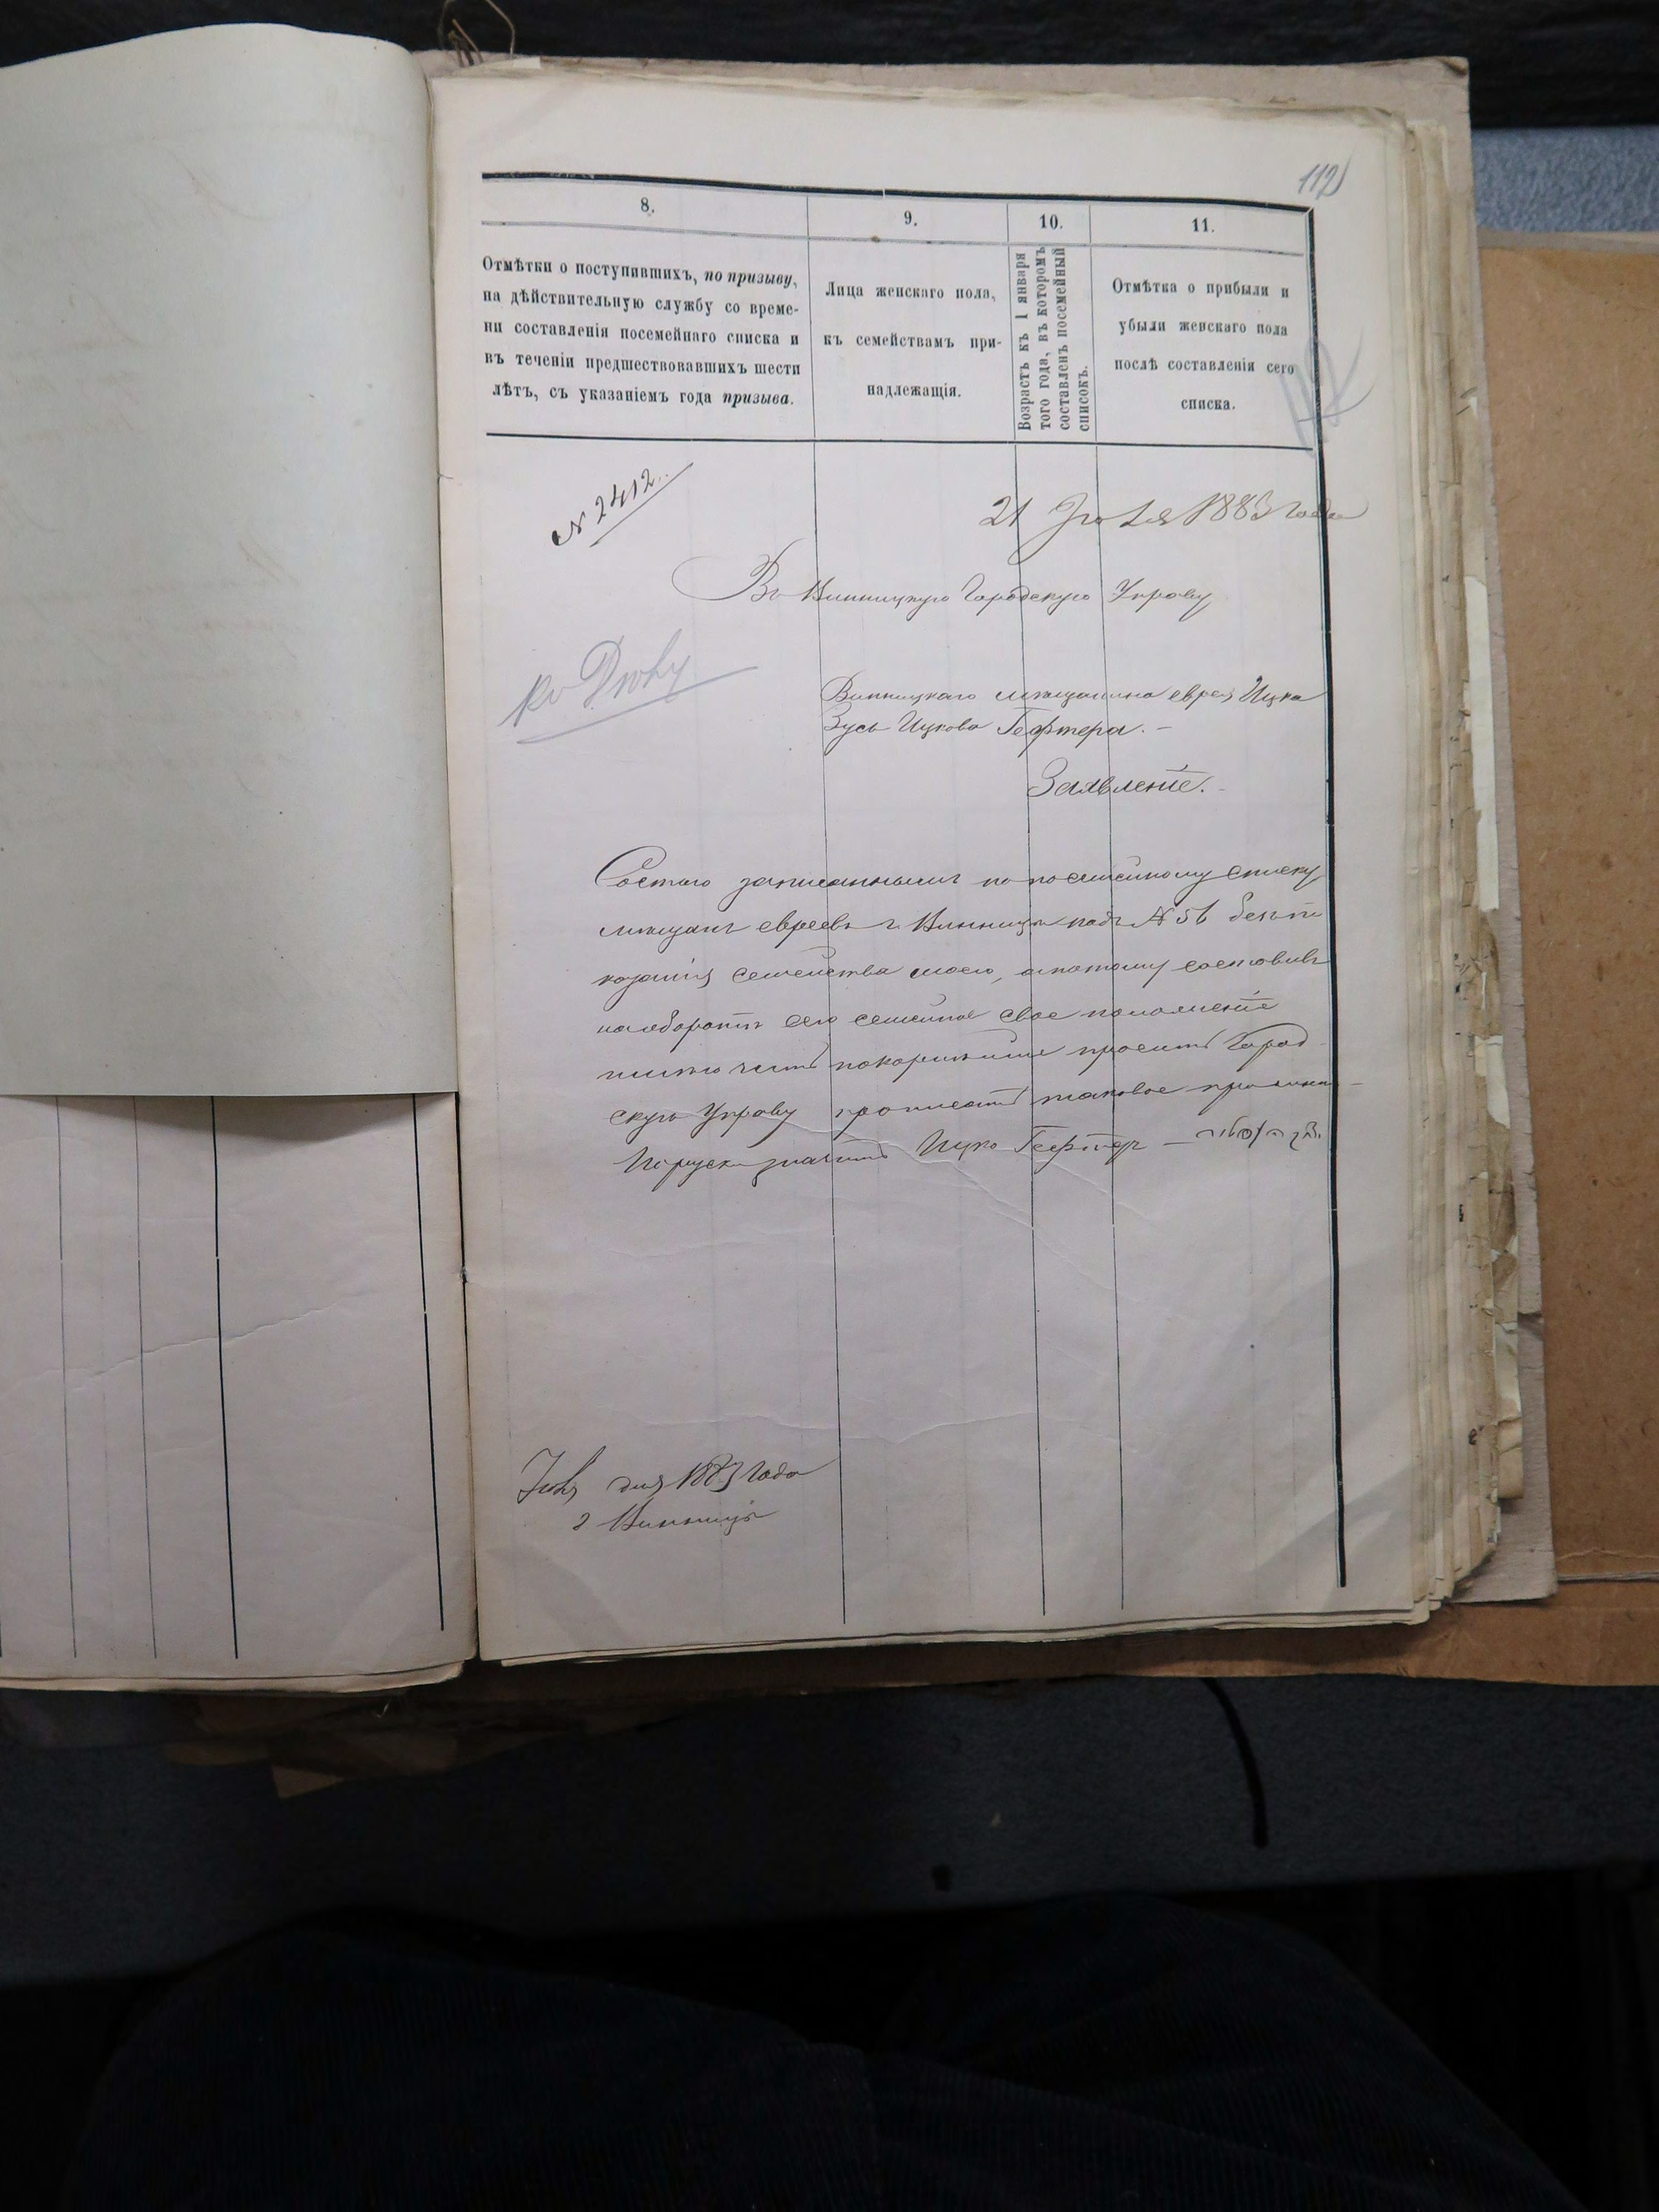 112
8.
9.
10.
11.
Отмѣтки о поступившихъ, по призыву,
на дѣйствительную службу со време-
ни составленія посемейнаго списка и
въ теченіи предшествовавшихъ шести
лѣтъ, съ указаніемъ года призыва.
Лица женскаго пола,
къ семействамъ при-
надлежащія.
Возрастъ къ 1 января
того года, въ которомъ
составленъ посемейный
списокъ.
Отмѣтка о прибыли и
убыли женскаго пола
послѣ составленія сего
списка.
№ 2412.
21 Іюля 1883 года
Въ Винницкую Городскую Управу
Къ Дѣлу
Винницкаго мѣщанина еврея Ицка
Зусь Ицкова Гефтера. —
Заявленіе. -
Состою записаннымъ по посемейному списку
мѣщанъ евреевъ г. Винницы подъ № 56 безъ по
казанія семейства моего, а потому составивъ
на оборотѣ сего семейное свое положеніе
имѣю честь покорнѣйше просить Город
скую Управу прописать таковое
По руски значитъ Ицко Гефтеръ —
Іюля дня 1883 года
г Винница